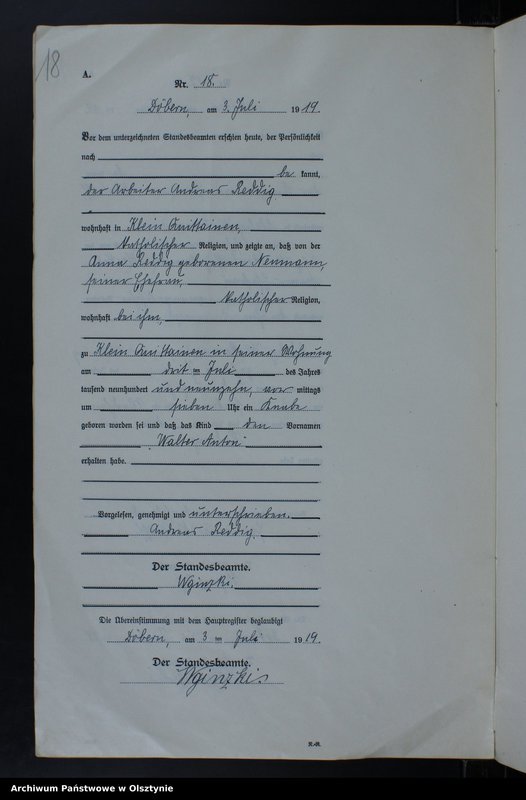 18
A.
Nr. 18.
Döbern, am 3. Juli 1919.
Vor dem unterzeichneten Standesbeamten erschien heute, der Persönlichkeit
nach
be kannt,
der Arbeiter Andreas Reddig
wohnhaft in Klein
katholischer Religion, und zeigte an, daß von der
Anna Reddig geborenen Neumann,
seiner Ehefrau,
katholischer Religion,
wohnhaft bei ihm,
zu Klein in seiner Wohnung
am ten Juli des Jahres
tausend neunhundert und neunzehn, vor mittags
um sieben Uhr ein Knabe
geboren worden sei und daß das Kind den Vornamen
Walter Anton
erhalten habe.
Vorgelesen, genehmigt und unterschrieben.
Andreas Reddig.
Der Standesbeamte.
Die Übereinstimmung mit dem Hauptregister beglaubigt
Döbern, am 3 ten Juli 1919.
Der Standesbeamte.
Archiwum Państwowe w Olsztynie